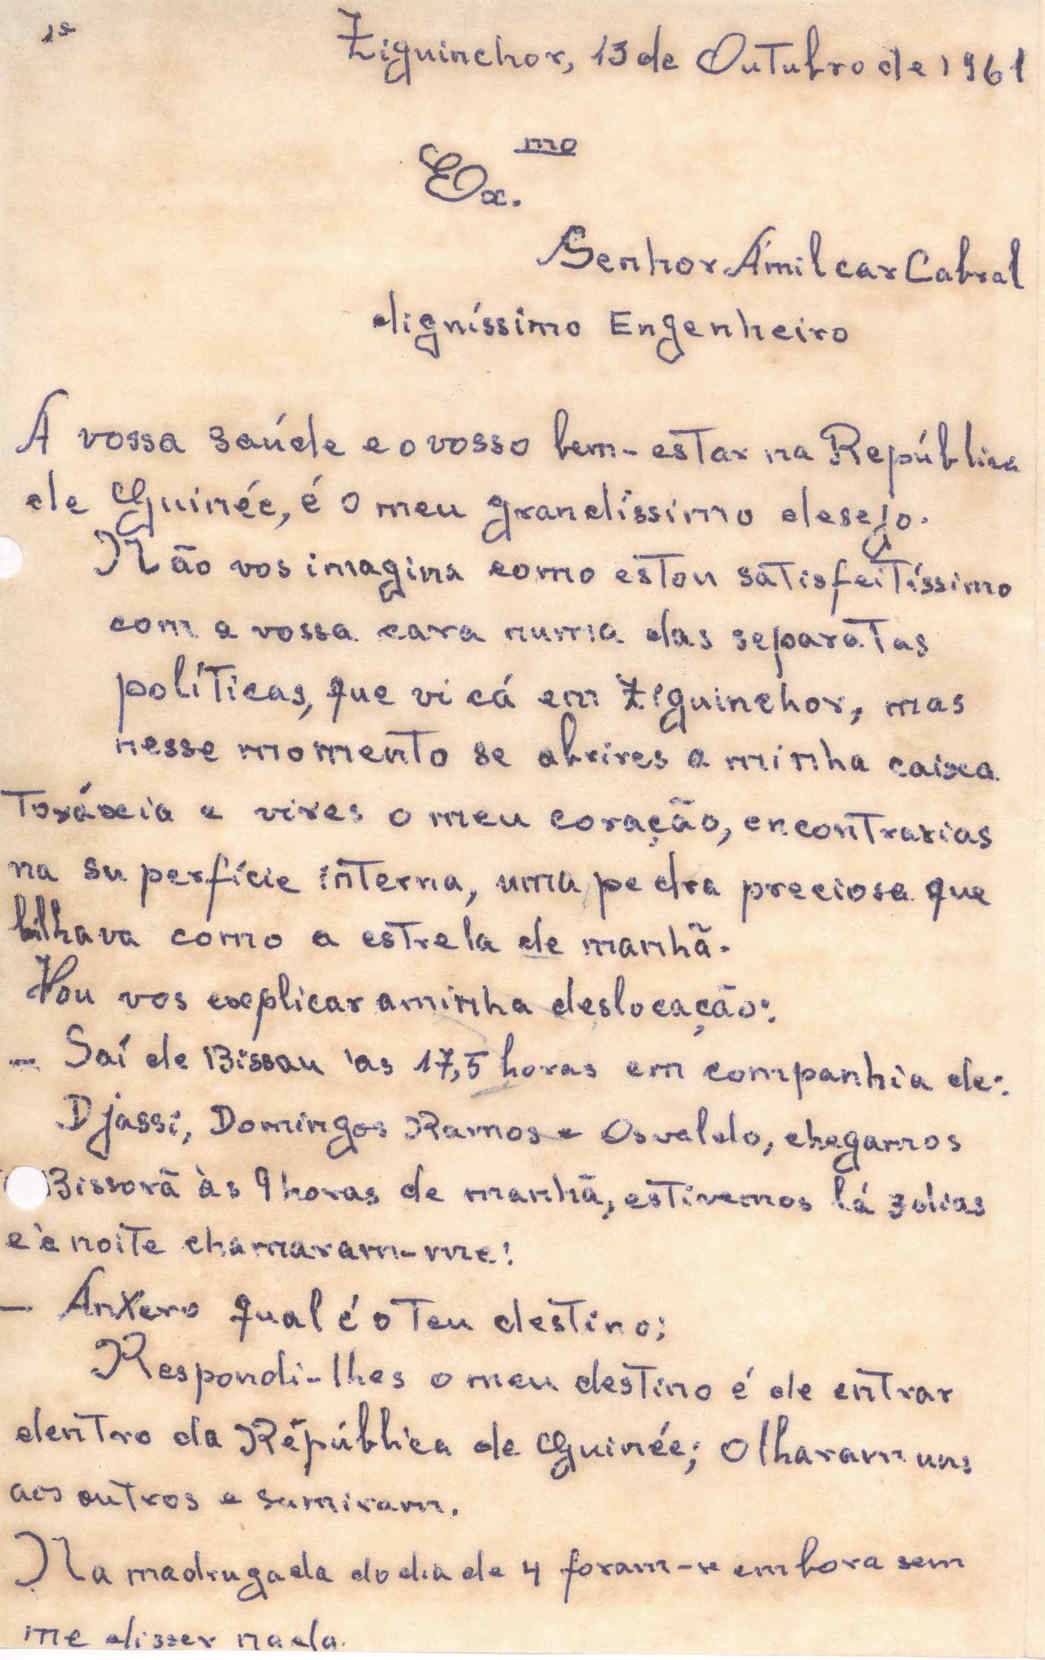 1º
Ziguinchor, 13 de Outubro de 1961
Ex.mo
Senhor Ámilcar Cabral
digníssimo Engenheiro
A vossa saúde e o vosso bem-estar na República
de Guinée, é o meu grandíssimo desejo.
Não vos imagina como estou satisfeitíssimo
com a vossa cara numa das separatas
políticas, que vi cá em Ziguinchor, mas
nesse momento se abrires a minha caixa
toráxcia e vires o meu coração, encontrarias
na superfície interna, uma pedra preciosa que
bilhava como a estrela de manhã.
Vou vos explicar a minha deslocação:
- Saí de Bissau às 17,5 horas em companhia de:
Djassi, Domingos Ramos e Osvaldo, chegamos
Bissorã às 9 horas de manhã, estivemos lá 3 dias
e à noite chamaram-me:
- Anxero qual é o teu destino;
Respondi-lhes o meu destino é de entrar
dentro da República de Guinée; Olharam uns
aos outros e sumiram.
Na madrugada do dia de 4 foram-se embora sem
me disser nada.